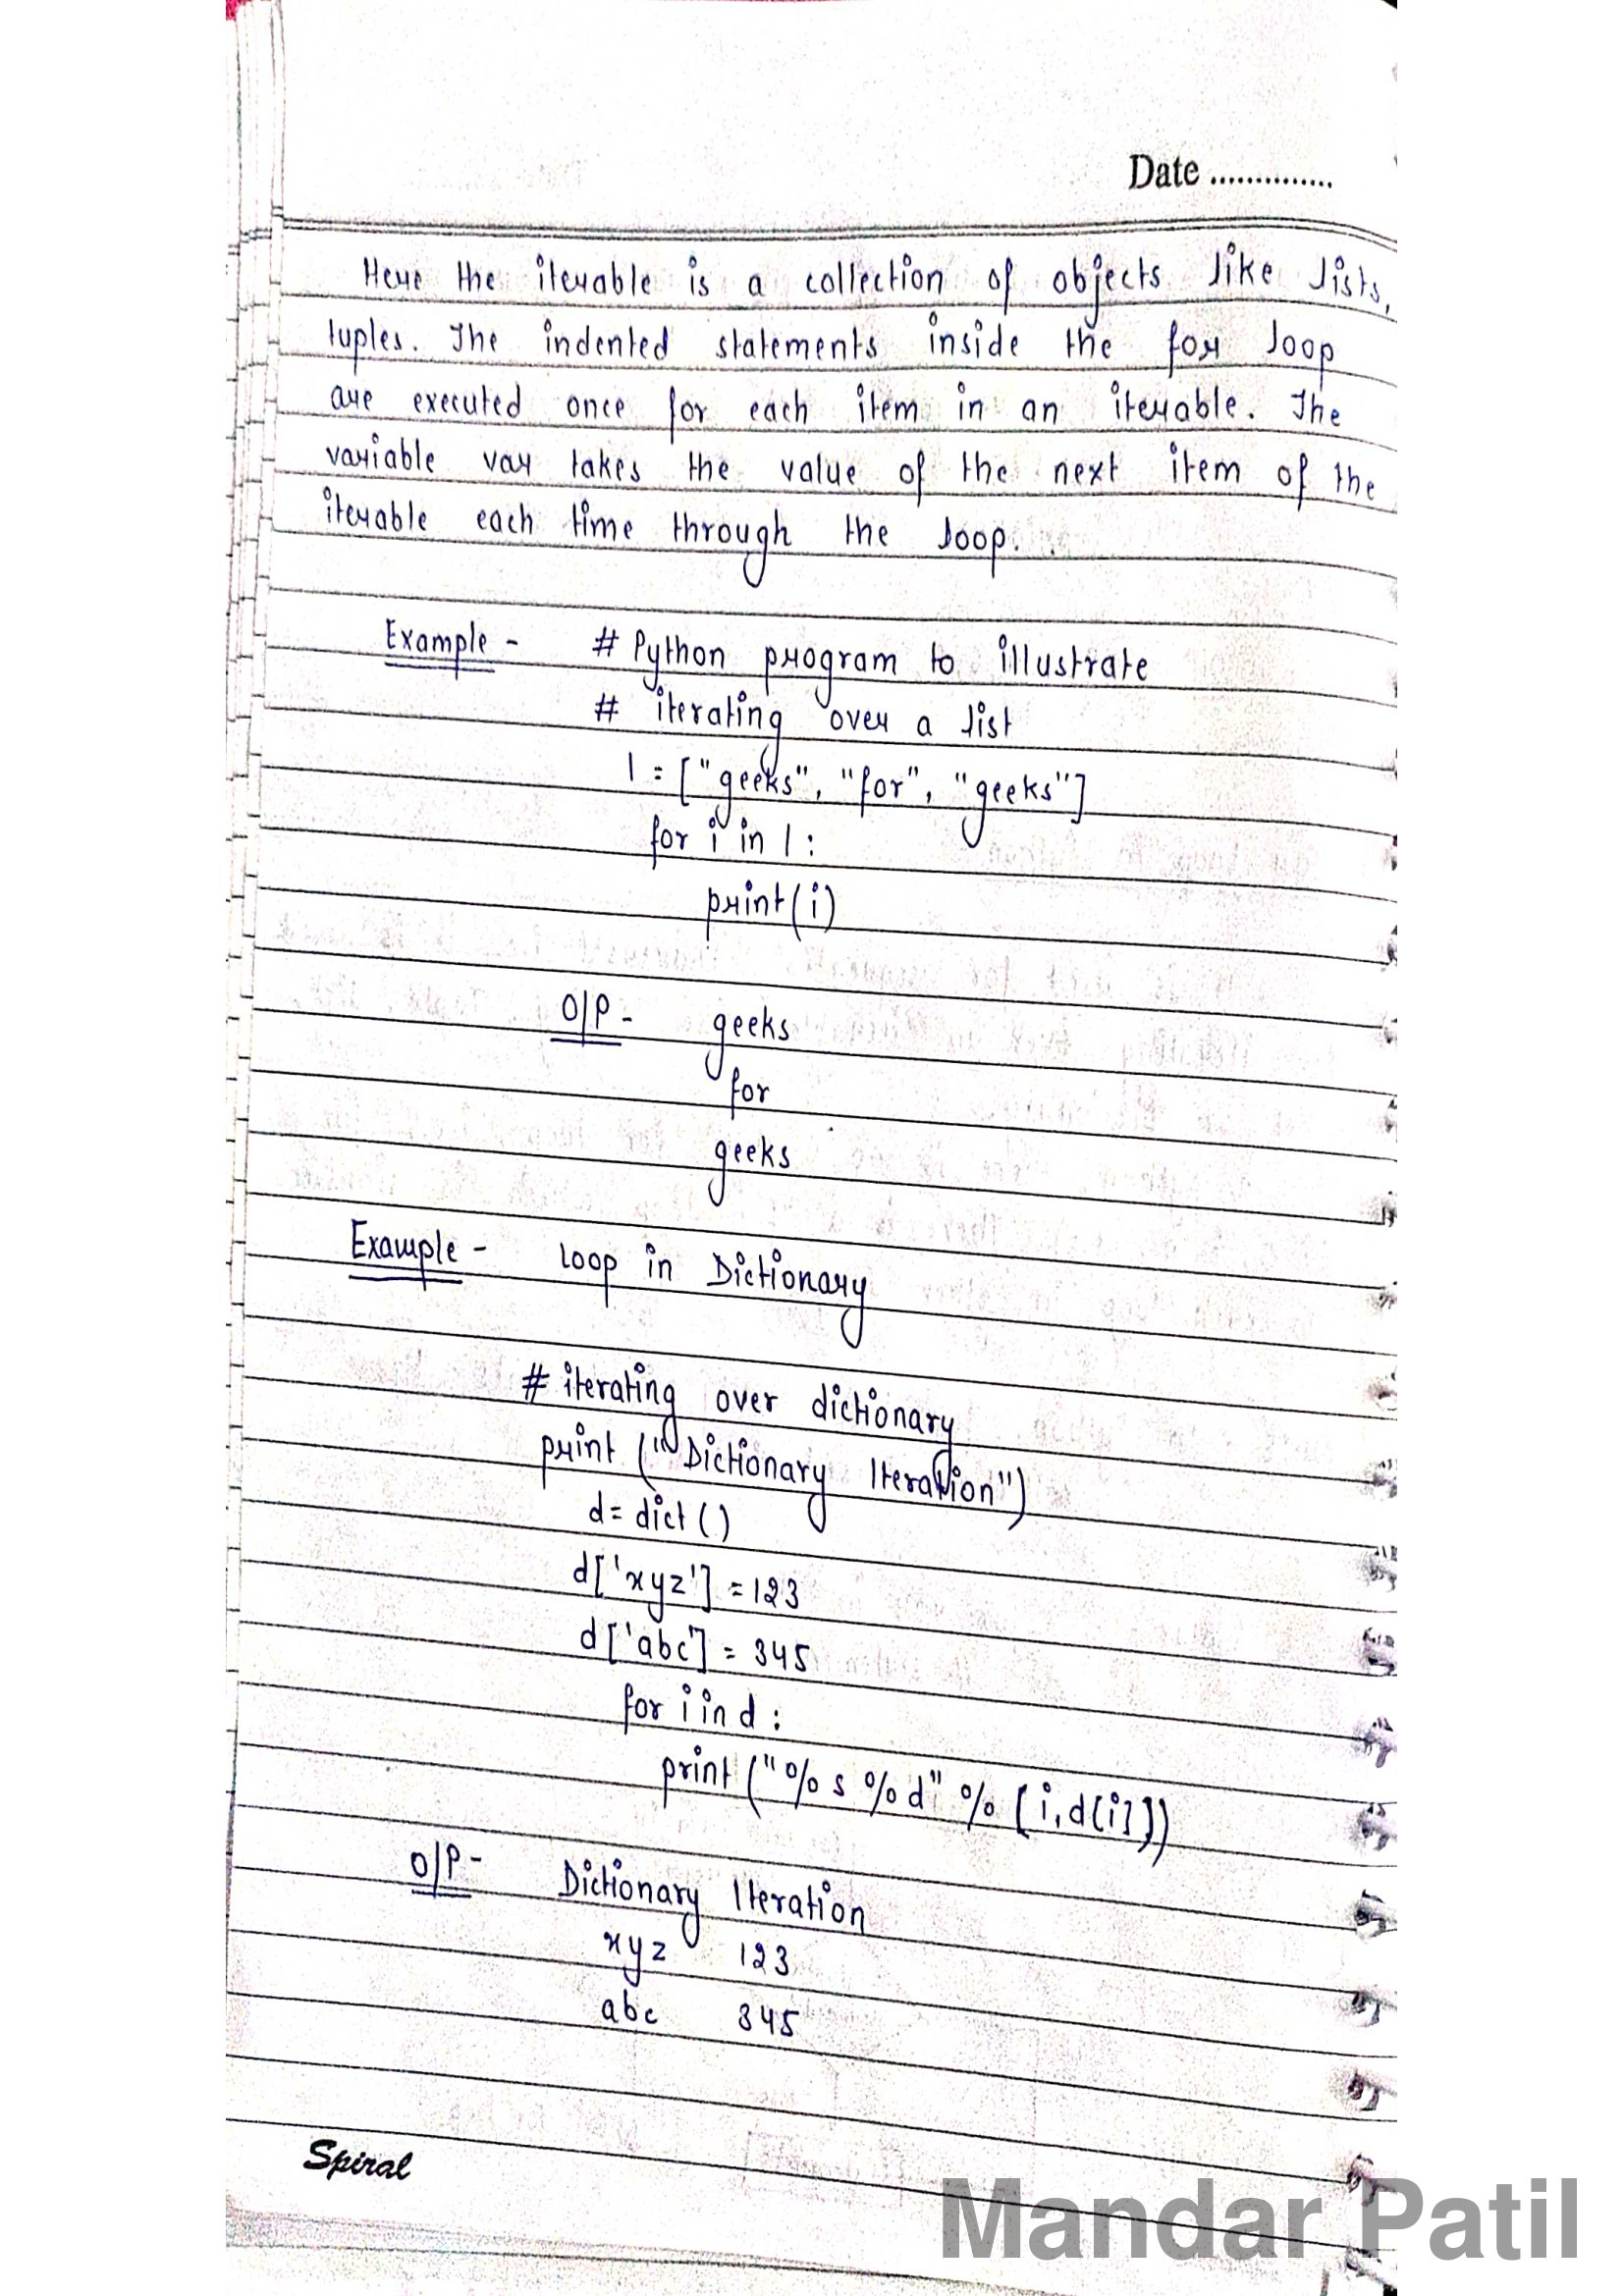 Date ..............
Here the iterable is a collection of objects like lists,
tuples. The indented statements inside the for loop
are executed once for each item in an iterable. The
variable var takes the value of the next item of the
iterable each time through the loop.
Example - # Python program to illustrate
# iterating over a list
l = ["geeks", "for", "geeks"]
for i in l :
print(i)
O/P - geeks
for
geeks
Example - Loop in Dictionary
# iterating over dictionary
print ("Dictionary Iteration")
d = dict ()
d['xyz'] = 123
d['abc'] = 345
for i in d :
print ("% s % d" % [i, d[i]])
O/P - Dictionary Iteration
xyz 123
abc 345
Spiral
Mandar Patil